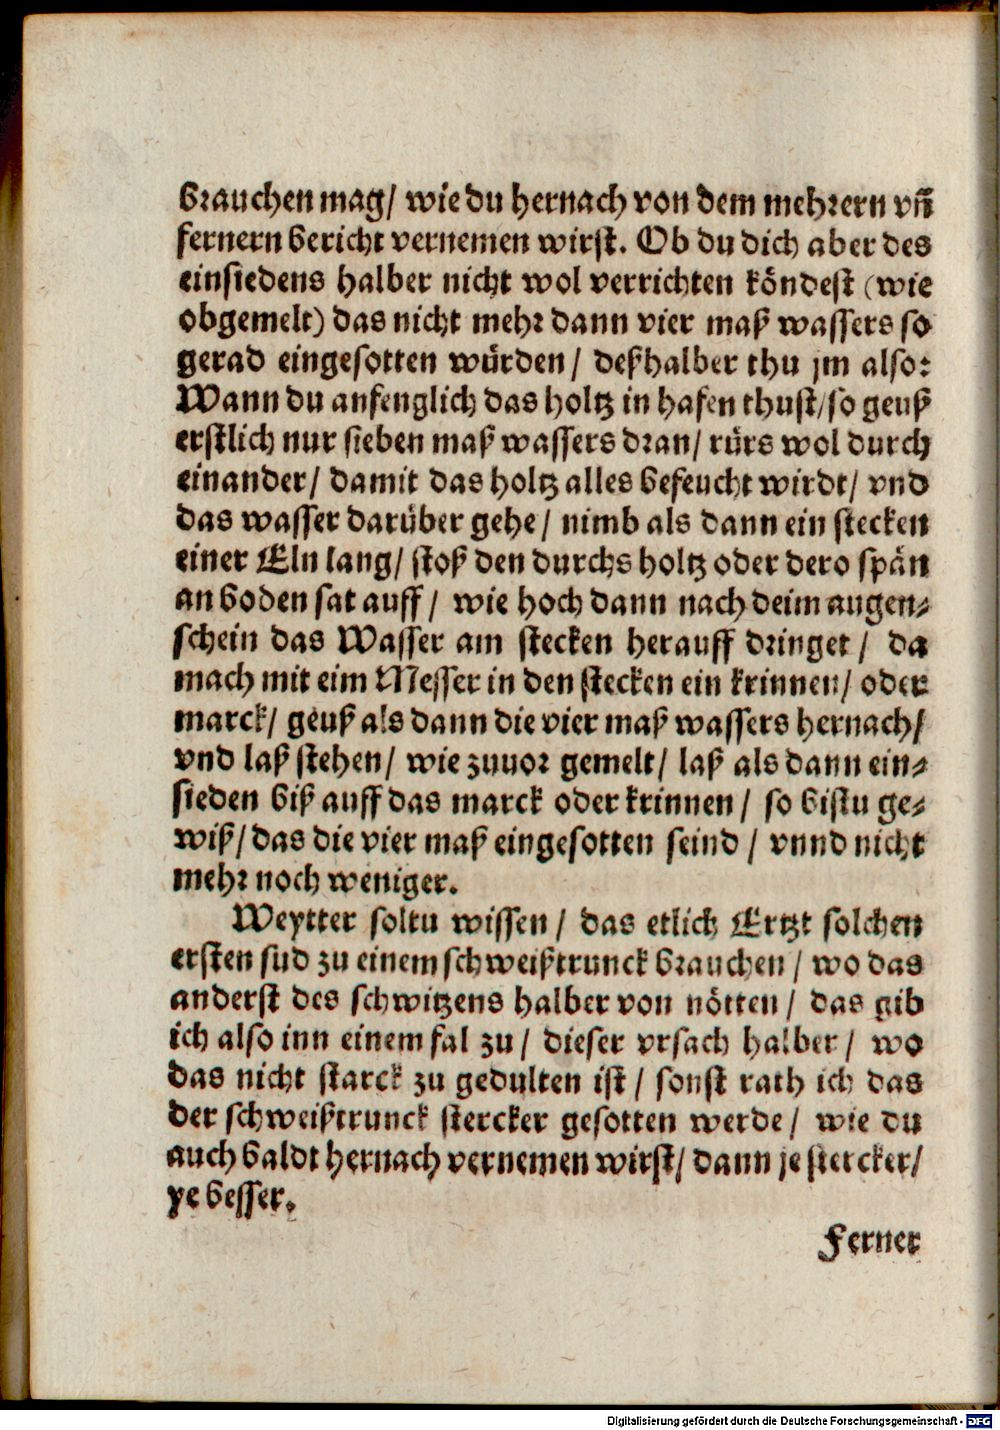 brauchen mag/ wie du hernach von dem mehrern vñ
fernern bericht vernemen wirst. Ob du dich aber des
einsiedens halber nicht wol verrichten köndest (wie
obgemelt) das nicht mehr dann vier maß wassers so
gerad eingesotten würden/ deßhalber thu jm also:
Wann du anfenglich das holtz in hafen thust/ so geuß
erstlich nur sieben maß wassers dran/ rürs wol durch
einander/ damit das holtz alles befeucht wirdt/ vnd
das wasser darüber gehe/ nimb als dann ein stecken
einer Eln lang/ stoß den durchs holtz oder dero spän
an boden sat auff/ wie hoch dann nach deim augen-
schein das Wasser am stecken herauff dringet/ da
mach mit eim Messer in den stecken ein krinnen/ oder
marck/ geuß als dann die vier maß wassers hernach/
vnd laß stehen/ wie zuuor gemelt/ laß als dann ein-
sieden biß auff das marck oder krinnen/ so bistu ge-
wiß/ das die vier maß eingesotten seind/ vnnd nicht
mehr noch weniger.
Weytter soltu wissen/ das etlich Ertzt solchen
ersten sud zu einem schweißtrunck brauchen/ wo das
anderst des schwitzens halber von nötten/ das gib
ich also inn einem fal zu/ dieser vrsach halber/ wo
das nicht starck zu gedulten ist/ sonst rath ich das
der schweißtrunck stercker gesotten werde/ wie du
auch baldt hernach vernemen wirst/ dann je stercker/
ye besser.
Ferner
Digitalisierung gefördert durch die Deutsche Forschungsgemeinschaft - DFG